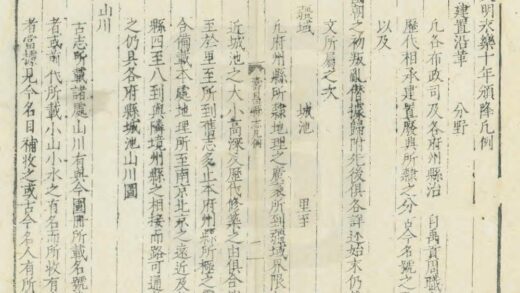 明永樂十年頒降凡例
建置沿革 分野
凡各布政司及各府州縣治 自禹貢周職
歷代相承建置廢興所隸之分古今名號之
以及
朝之初叛亂僭據歸附先後俱各詳述始末仍
文所屬之次
疆域 城池 里至
凡府州縣所隸地理之廣袤所到疆域界限
壽昌縣志凡例
近城池之大小高深及歷代修築之由俱合
至於里至所到舊志多止本府州縣所極之
今備載本處地理所至南京北京之遠近及
縣四至八到與鄰境州縣之相接而路可通
之仍具各府縣城池山川圖
山川
古志所載諸處山川有與今圖冊所載名號
者或前代所載小山小水之有名而所收有
者當據見今名目補收之或古今名人有所